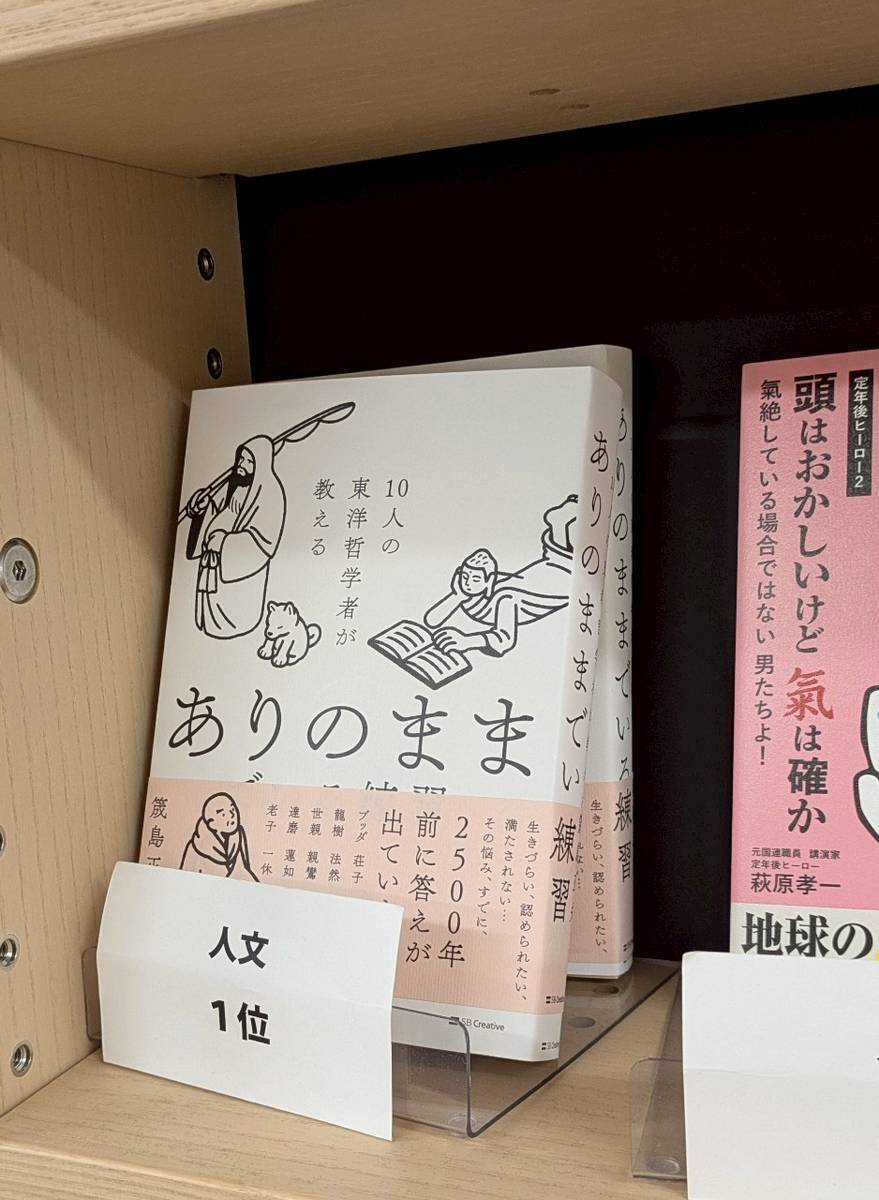 10人の
東洋哲学者が
教える
ありのまま
生きづらい、認められたい、
満たされない…
その悩み、すでに、
2500年
前に答えが
出てい
ブッダ 荘子
龍樹 法然
世親 親鸞
達磨 蓮如
老子 一休
SB Creative
ありのままでい
練習
SB Crea
ありのままでいる練習
生きづらい、認められたい、
人文
1位
定年後ヒーロー2
頭はおかしいけど氣は確か
氣絶している場合ではない 男たちよ!
元国連職員 講演家
定年後ヒーロー
萩原孝一
地球の